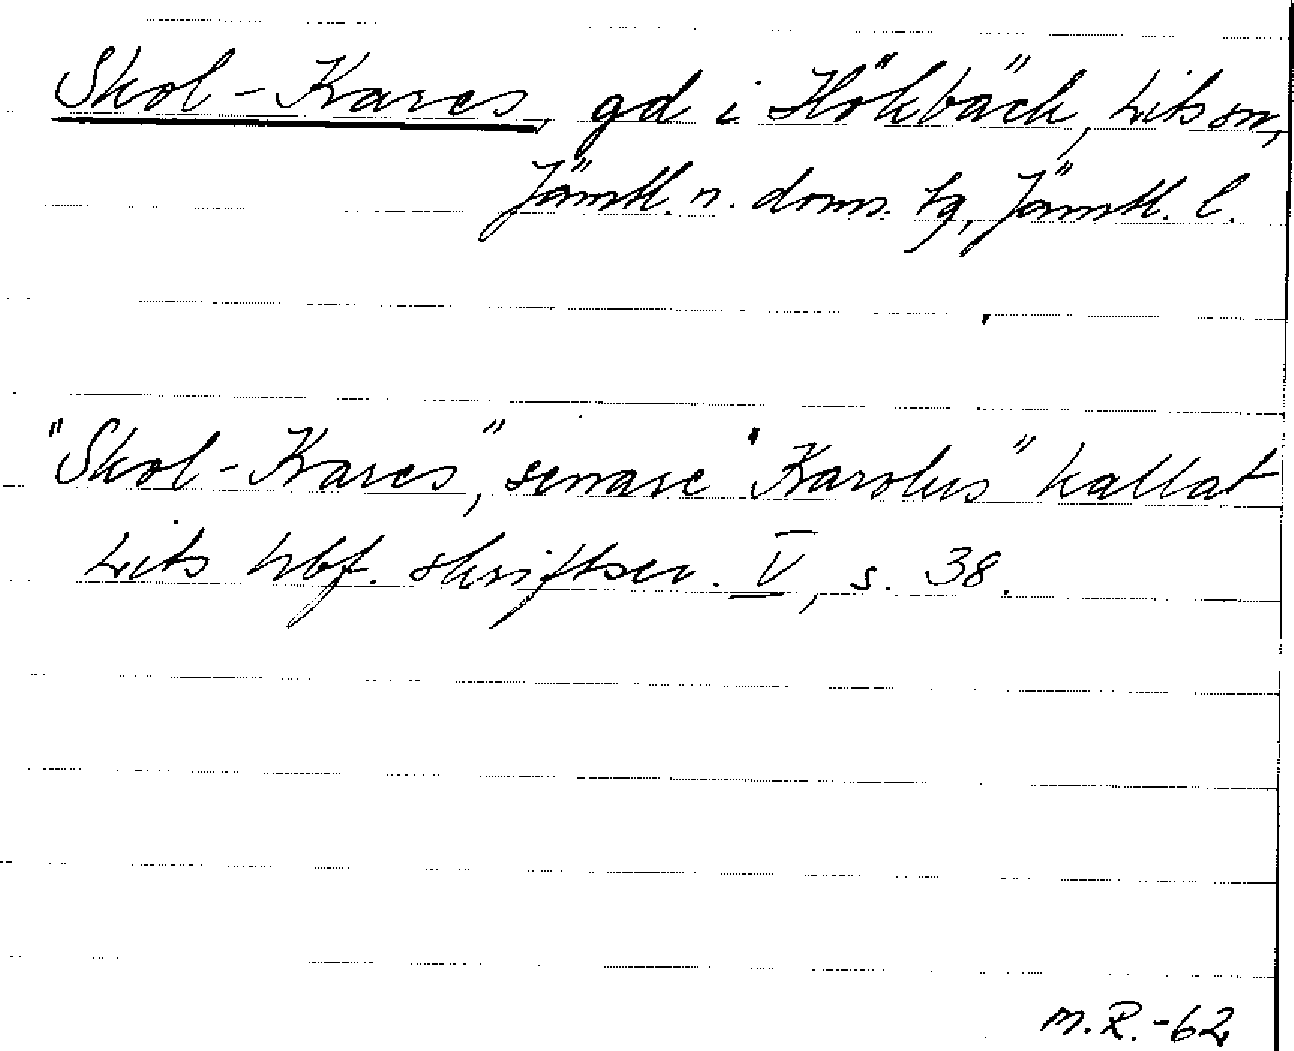 Skol-Kares, gd i Hökbäck, Lits sn,
Jämtl. n. doms. tg, Jämtl. l.
"Skol-Kares", senare "Karolus" kallat
Lits hbf. skriftser. V, s. 38.
M.R.-62